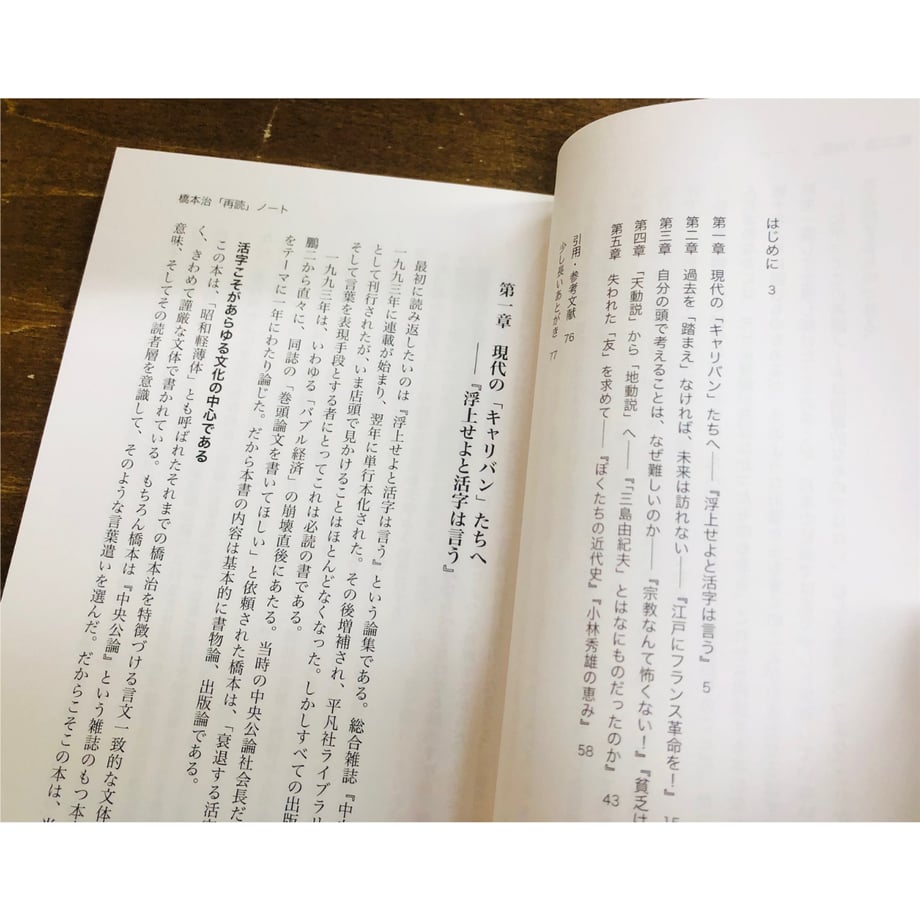 はじめに 3
第一章 現代の「キャリバン」たちへ——『浮上せよと活字は言う』 5
第二章 過去を「踏まえ」なければ、未来は訪れない——『江戸にフランス革命を!』 15
第三章 自分の頭で考えることは、なぜ難しいのか——『宗教なんて怖くない!』『貧乏は
第四章 「天動説」から「地動説」へ——『「三島由紀夫」とはなにものだったのか』 43
第五章 失われた「友」を求めて——『ぼくたちの近代史』『小林秀雄の恵み』 58
引用・参考文献 76
少し長いあとがき 77
橋本治「再読」ノート
第一章 現代の「キャリバン」たちへ
——『浮上せよと活字は言う』
最初に読み返したいのは『浮上せよと活字は言う』という論集である。総合雑誌『中央
一九九三年に連載が始まり、翌年に単行本化された。その後増補され、平凡社ライブラリ
として刊行されたが、いま店頭で見かけることはほとんどなくなった。しかしすべての出版
そして言葉を表現手段とする者にとってこれは必読の書である。
一九九三年は、いわゆる「バブル経済」の崩壊直後にあたる。当時の中央公論社会長だ
鵬二から直々に、同誌の「巻頭論文を書いてほしい」と依頼された橋本は、「衰退する活字
をテーマに一年にわたり論じた。だから本書の内容は基本的に書物論、出版論である。
活字こそがあらゆる文化の中心である
この本は、「昭和軽薄体」とも呼ばれたそれまでの橋本治を特徴づける言文一致的な文体
く、きわめて謹厳な文体で書かれている。もちろん橋本は『中央公論』という雑誌のもつ本
意味、そしてその読者層を意識して、そのような言葉遣いを選んだ。だからこそこの本は、